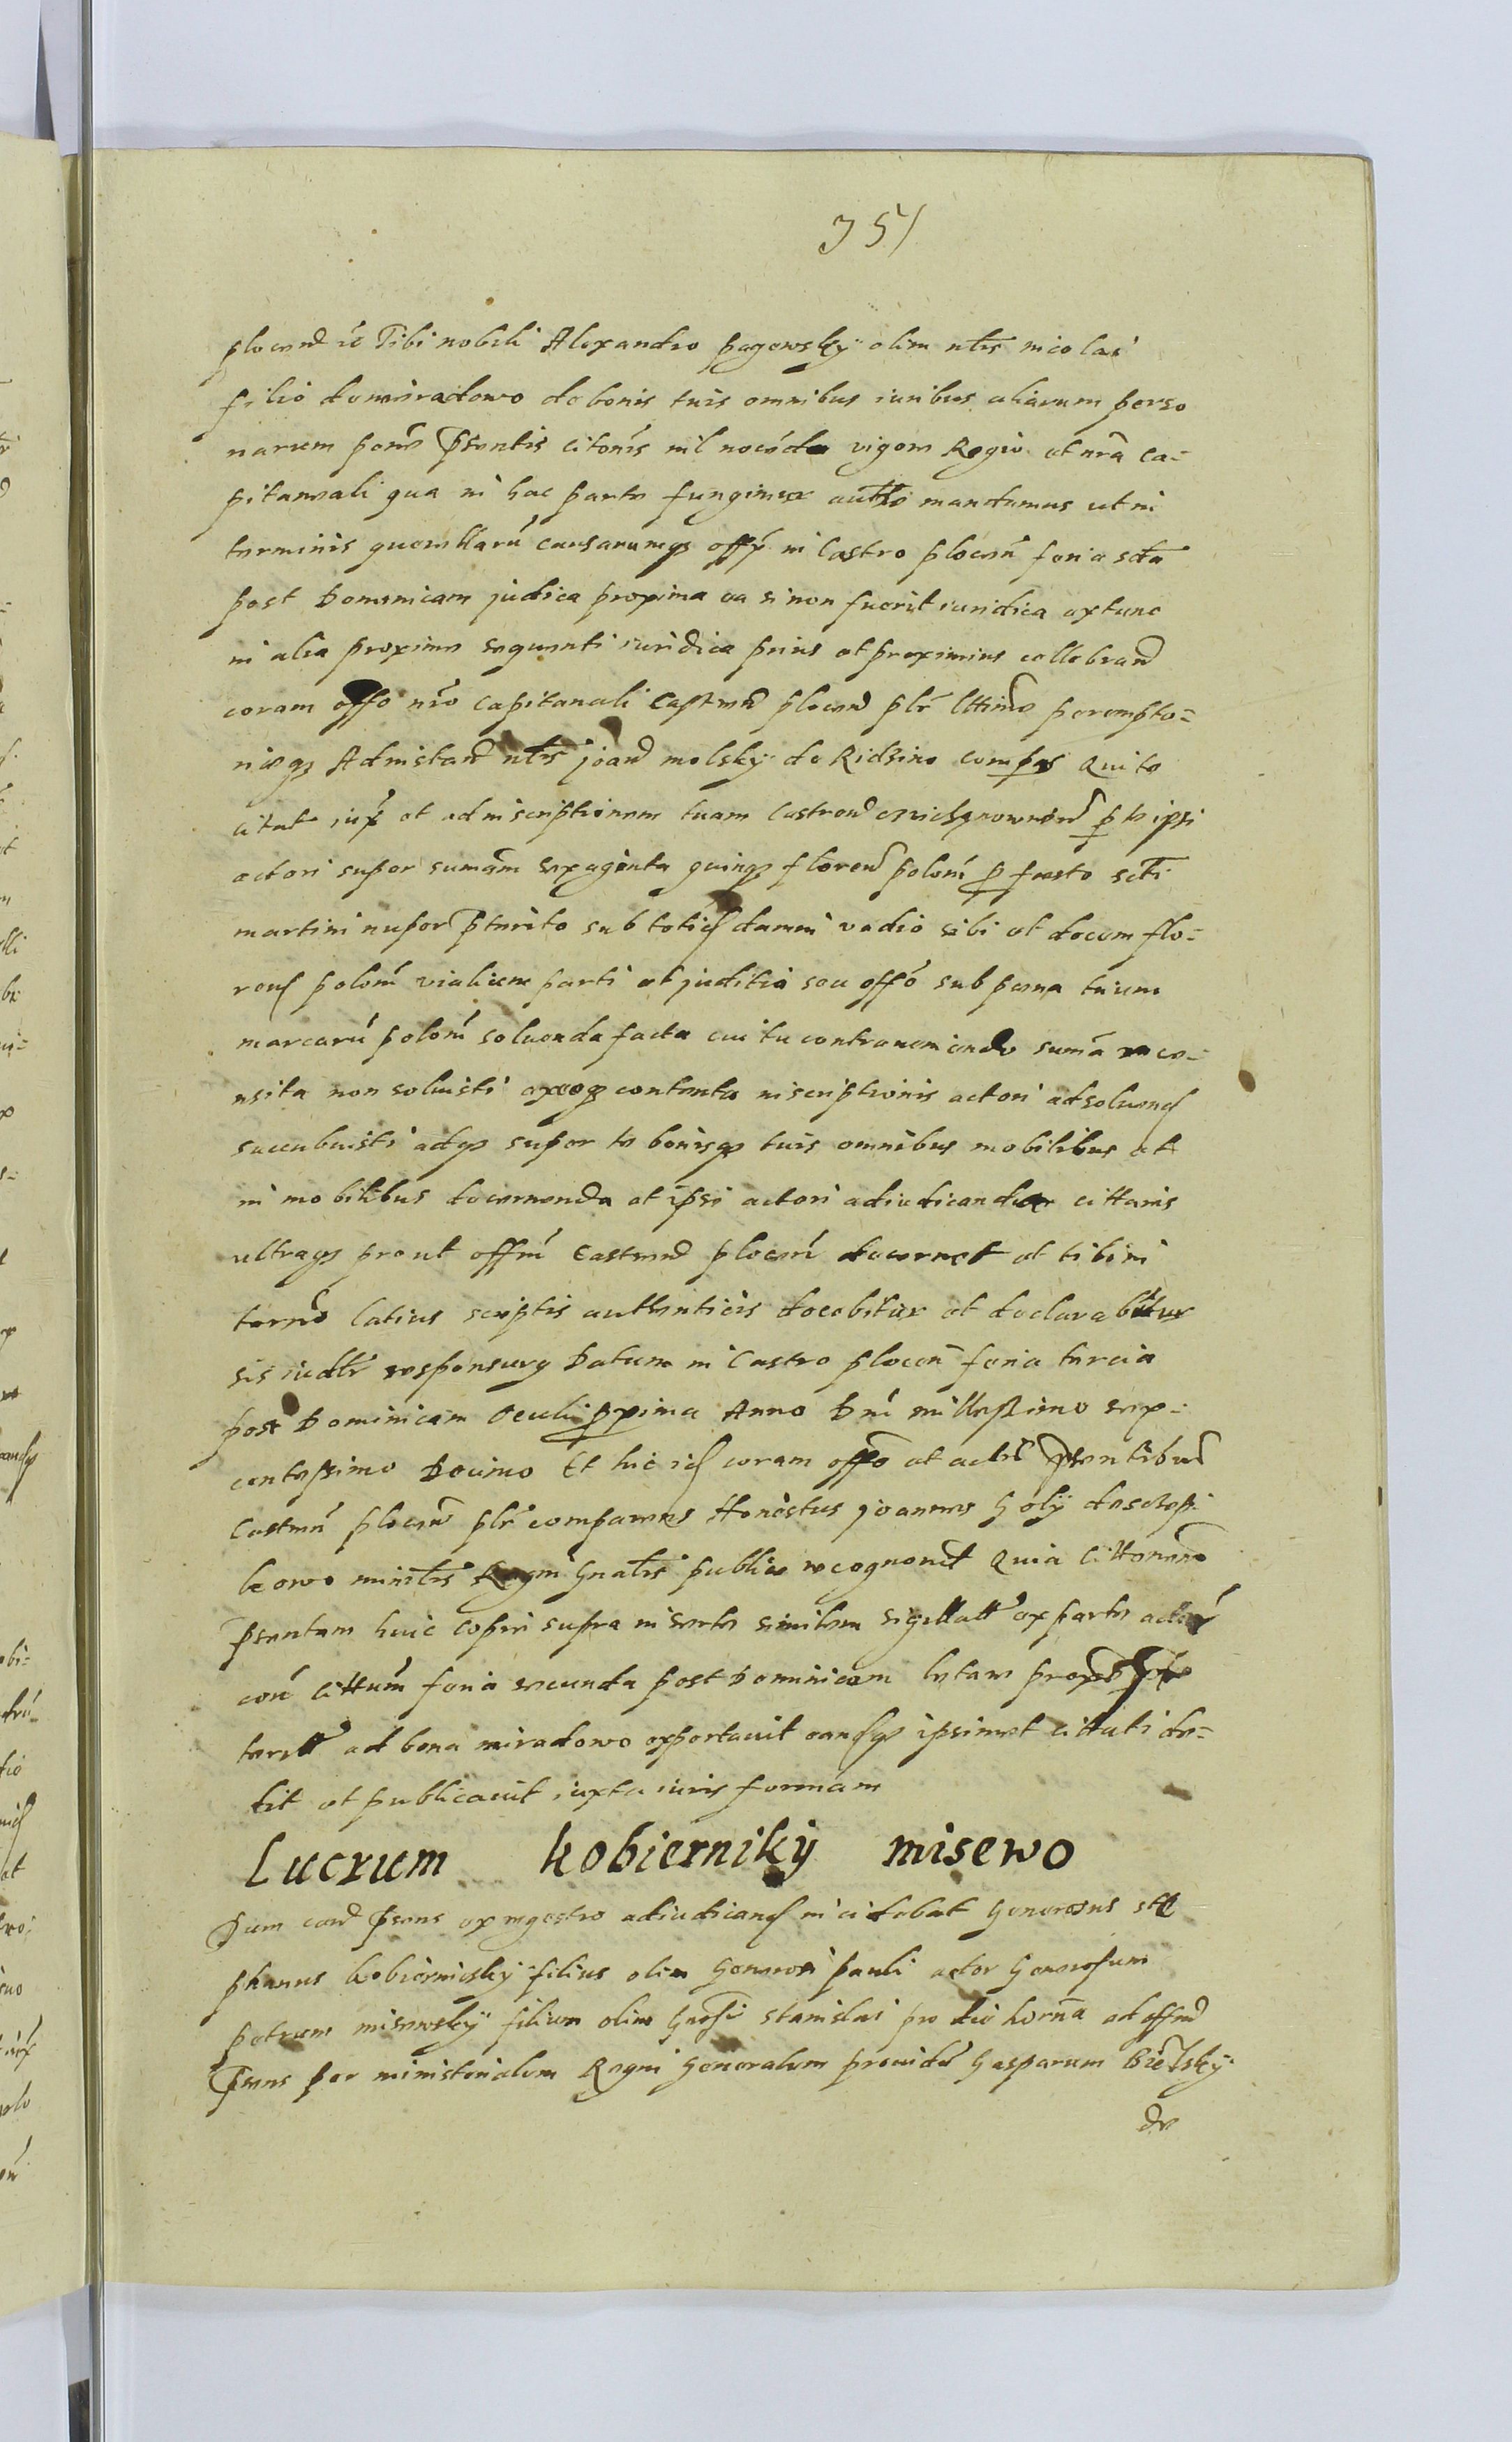 751
plocen̄ ẽ Tibi nobili Alexandro pagowsky olim nt̃is nicolai
filio de miradowo de bonis tuis omnibus iuribus aliarum perso
narum poñs p̃sentis citoñis nil nocẽda vigore Regio et nr̃a ca-
pitaneali qua in hac parte fungimur autht̃e mandamus ut in
terminis querellarũ causarumq; offÿ in Castro plocen̄ feria sctã
post Dominicam judica proxima ea si non fuerit iuridica extunc
in alia proxime sequenti iuridica prius et proximius cellebrand
coram offõ nrõ capitanali Castren̄ plocen̄ plr̃ lttime perempto-
rieq; Ad instan̄ nt̃is joan̄ molsky de Ridzino compes Qui te
citat iux̃ et ad inscriptionem tuam Castren̄ p te ipsi
actori super summam sexaginta quinq; floren̄ poloñ p festo scti
martini nuper p̃terito sub totid damni vadio sibi et decem flo-
ren poloñ vialium parti et juditio seu offõ sub pena trium
marcarũ poloñ soluenda facta cui tu contraueniendo sumã reco-
nsita non soluisti exeoq; contenta inscriptionis actori ad soluend
succubuisti adq; super te bonisq; tuis omnibus mobilibus et
in mobilibus decernenda et ipsi actori adiudicanda cittaris
ultraq; prout offiũ Castren̄ plocen̄ decernet et tibi in
termõ latius scriptis authenticis docebitur et declarabitur
sis iudlr̃ responsurg Datum in Castro plocen̄ feria tercia
post Dominicam Oculi pxima Anno Dnĩ millessimo sex-
centessimo Decimo Et hic id coram offõ et actis p̃sentibus
Castreñ plocen̄ plr̃ comparens Honestus joannes Goly de
leowo minit̃is Regni Gnat̃is publice recognouit Quia Cittonem
p̃sentem huic Copiei supra inserte similem sigillatt̃ ex parte actor
con̄ cittum feria secunda post Dominicam letare
terit̃ ad bona miradowo exportauit eandq; ipsimet cittati de-
dit et publicauit iuxta iuris formam
Lucrum kobierniky misewo
Dum corã p̃sens ex regestro adiudicand incidebat Generosus ste
phanus kobierniczky filius olim Generosi pauli actor Generosum
petrum misewsky filium olim Gnosi stanislai pro die hornã ad offiũ
p̃sens per ministerialem Regni Generalem prouidũ Gasparum Bielsky
de